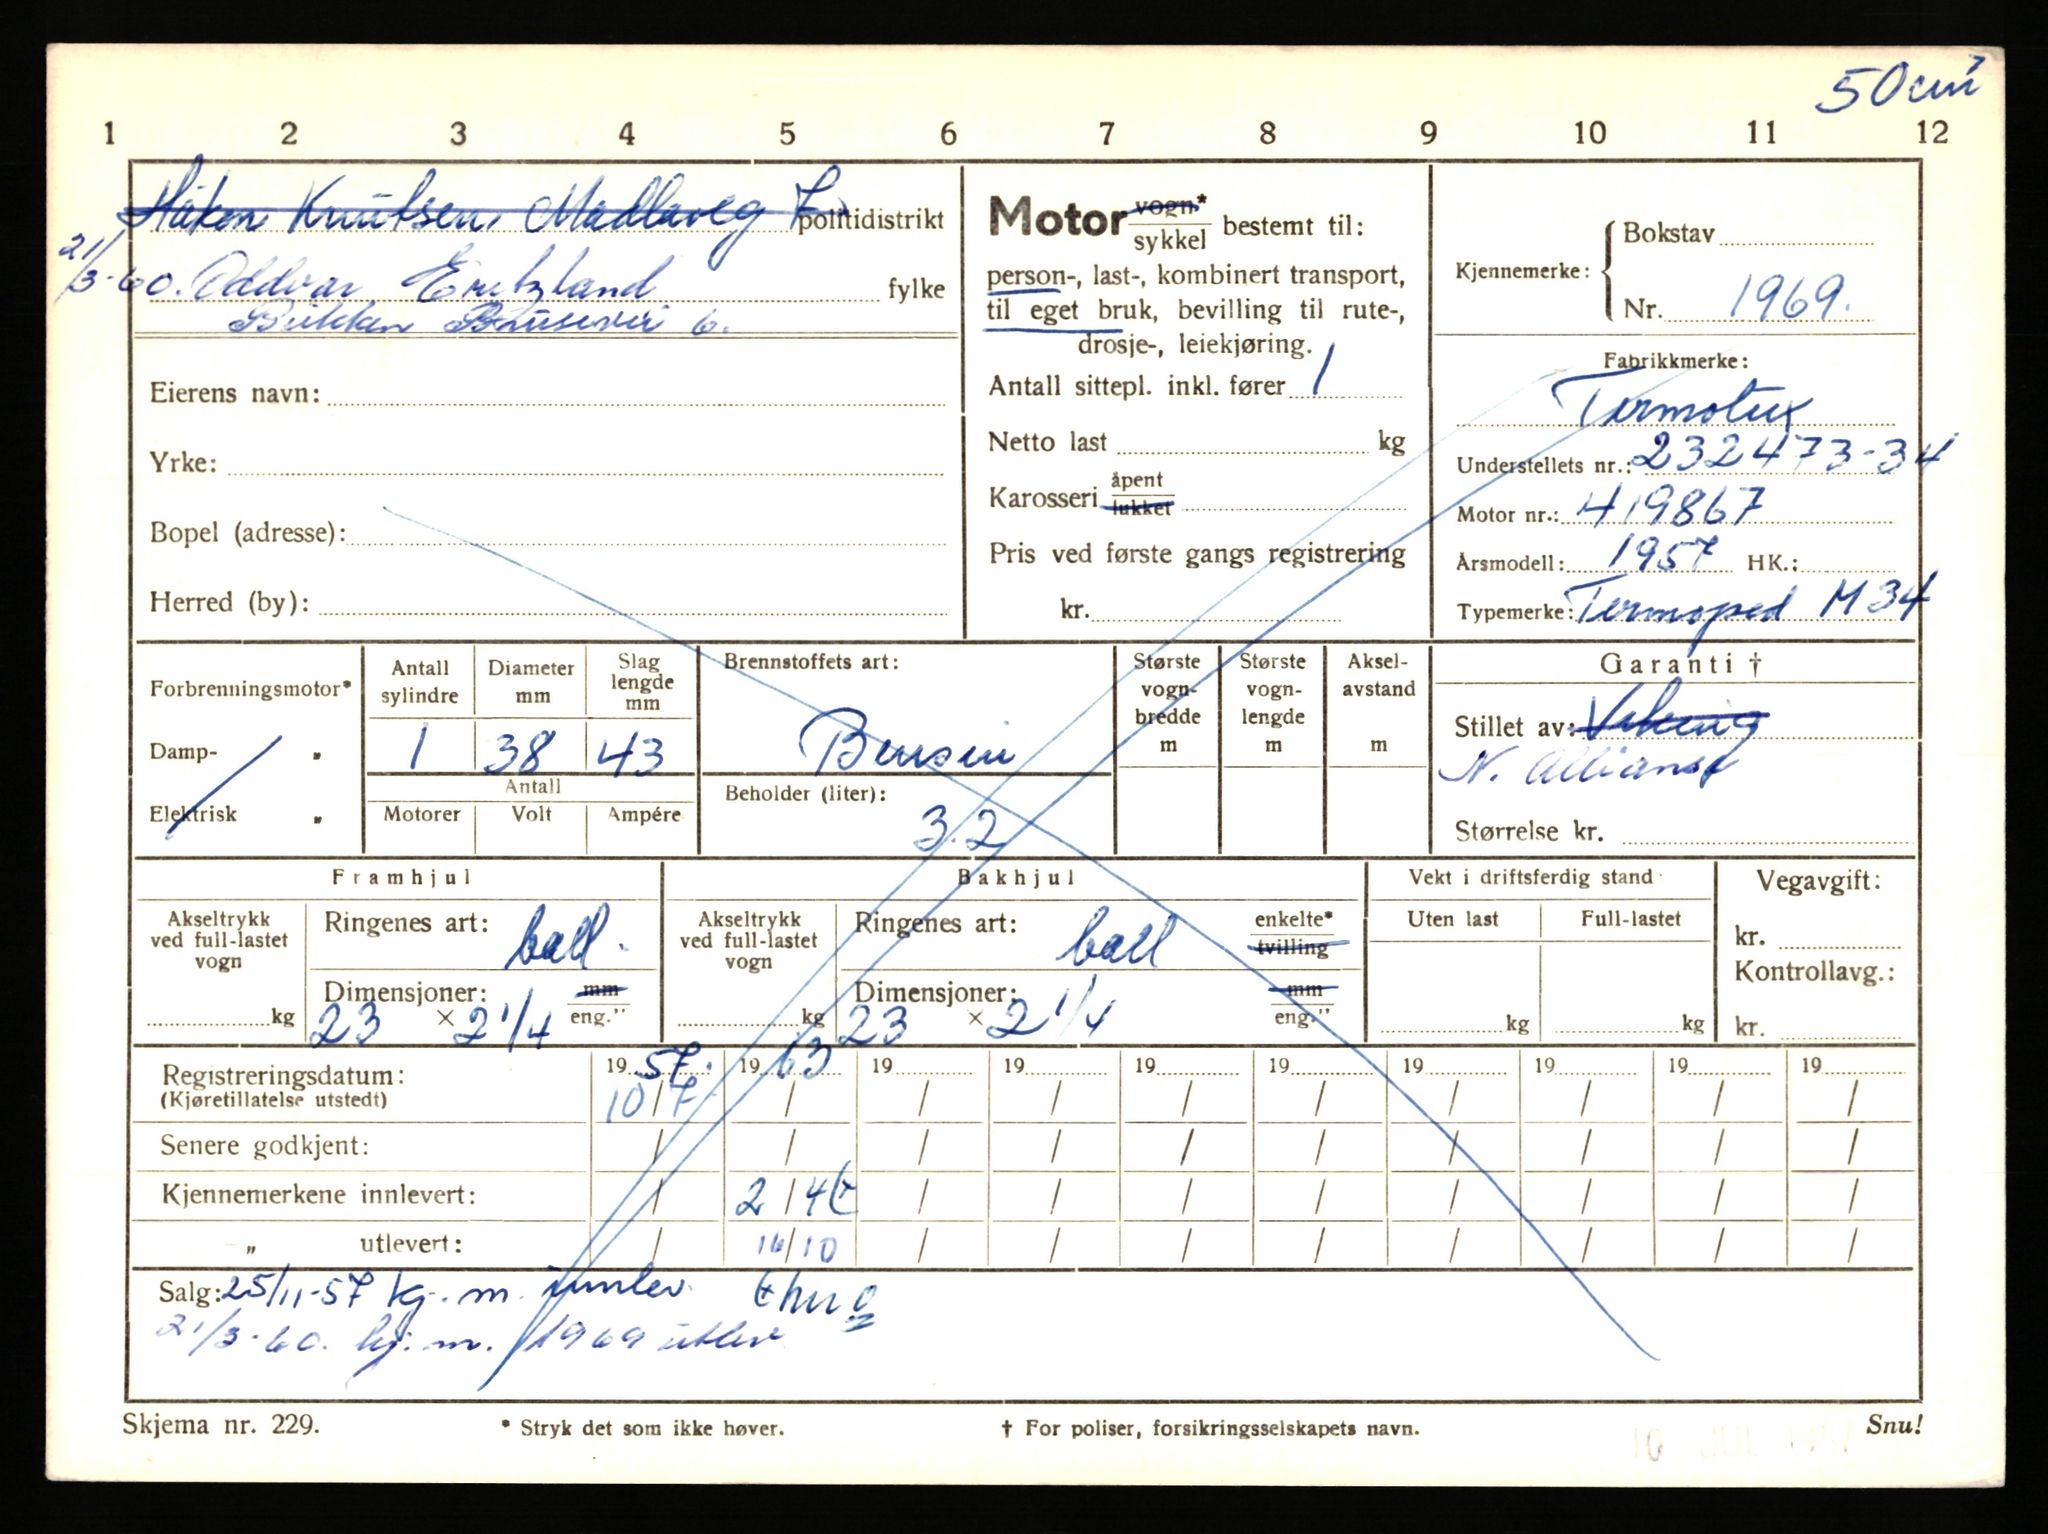 50 cm³
1 2 3 4 5 6 7 8 9 10 11 12
Håkon Knutsen, Madlaveg 7. politidistrikt
21/3-60. Oddvar fylke
6.
Eierens navn:
Yrke:
Bopel (adresse):
Herred (by):
Motor vogn* sykkel bestemt til:
person-, last-, kombinert transport,
til eget bruk, bevilling til rute-,
drosje-, leiekjøring.
Antall sittepl. inkl. fører 1
Netto last kg
Karosseri åpent lukket
Pris ved første gangs registrering
kr.
Kjennemerke: Bokstav
Nr. 1969.
Fabrikkmerke:
Tirmotux
Understellets nr.: 232473-34
Motor nr.: 419867
Årsmodell: 1957 HK.:
Typemerke: Termoped M 34
Forbrenningsmotor*
Damp- „
Elektrisk „
Antall sylindre Diameter mm Slag lengde mm
1 38 43
Antall
Motorer Volt Ampére
Brennstoffets art:
Bensin
Beholder (liter):
3.2
Største vogn- bredde m
Største vogn- lengde m
Aksel- avstand m
Garanti †
Stillet av: Viking
N. Alliance
Størrelse kr.
Framhjul
Akseltrykk ved full-lastet vogn kg
Ringenes art: ball.
Dimensjoner: mm eng."
23 × 2 1/4
Bakhjul
Akseltrykk ved full-lastet vogn kg
Ringenes art: ball enkelte* tvilling
Dimensjoner: mm eng."
23 × 2 1/4
Vekt i driftsferdig stand
Uten last Full-lastet
kg kg
Vegavgift:
kr.
Kontrollavg.:
kr.
Registreringsdatum: 1957. 1963 19 19 19 19 19 19 19 19
(Kjøretillatelse utstedt) 10/7 / / / / / / / / /
Senere godkjent: / / / / / / / / / /
Kjennemerkene innlevert: / 2/4 / / / / / / / /
„ utlevert: / 16/10 / / / / / / / /
Salg: 25/11-57 kj. m. innlev.
21/3-60. kj. m. 1969 utlev
Skjema nr. 229.
* Stryk det som ikke høver.
† For poliser, forsikringsselskapets navn.
Snu!
10 JUL 1957